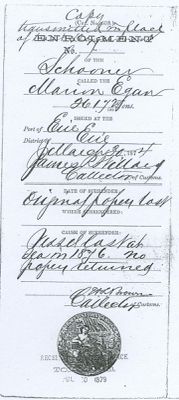 Copy
(Cat. No. 536.)
transmitted in place
of
ENROLMENT
No.
OF THE
Schooner
Marion Egan
26173
ISSUED AT THE
Port of Erie
District of Erie
1874
James
Collector of Customs.
DATE OF SURRENDER:
Original papers lost
WHERE SURRENDERED:
CAUSE OF SURRENDER:
Vessel lost at
sea in 1876. no
papers returned
Collector of Customs.
1879